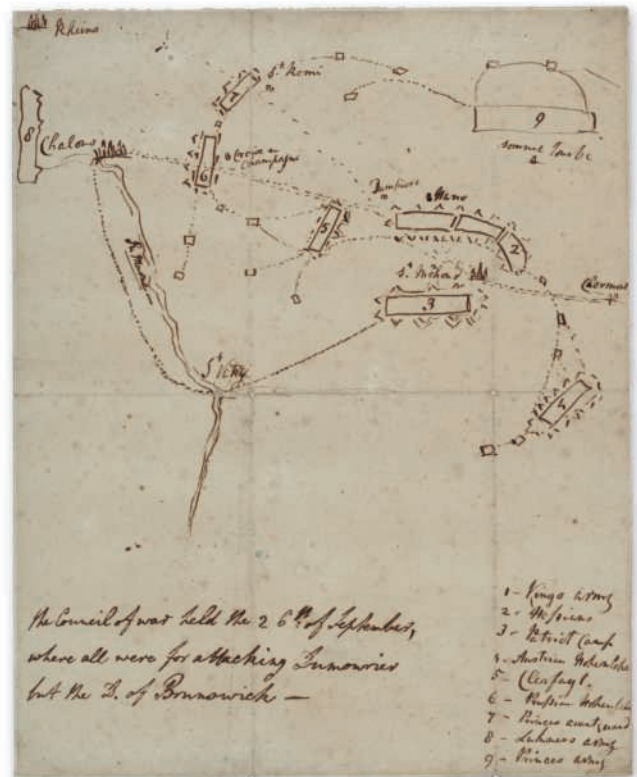 Rheims
St Remi
9
Somme Tourbe
8
Chalons
7
6
Croix en
Champagne
Dampiere
Hano
5
2
R. Marne
St Nehard
Clermont
3
St Vitry
4
the Council of war held the 26th of September,
where all were for attacking Dumourier
but the D. of Brunswick —
1 - Kings army
2 - Hessians
3 - Patriot Camp
4 - Austrian Hohenlohe
5 - Clerfayt.
6 - Prussian Hohenlohe
7 - Princes avantguard
8 - Lukners army
9 - Princes army